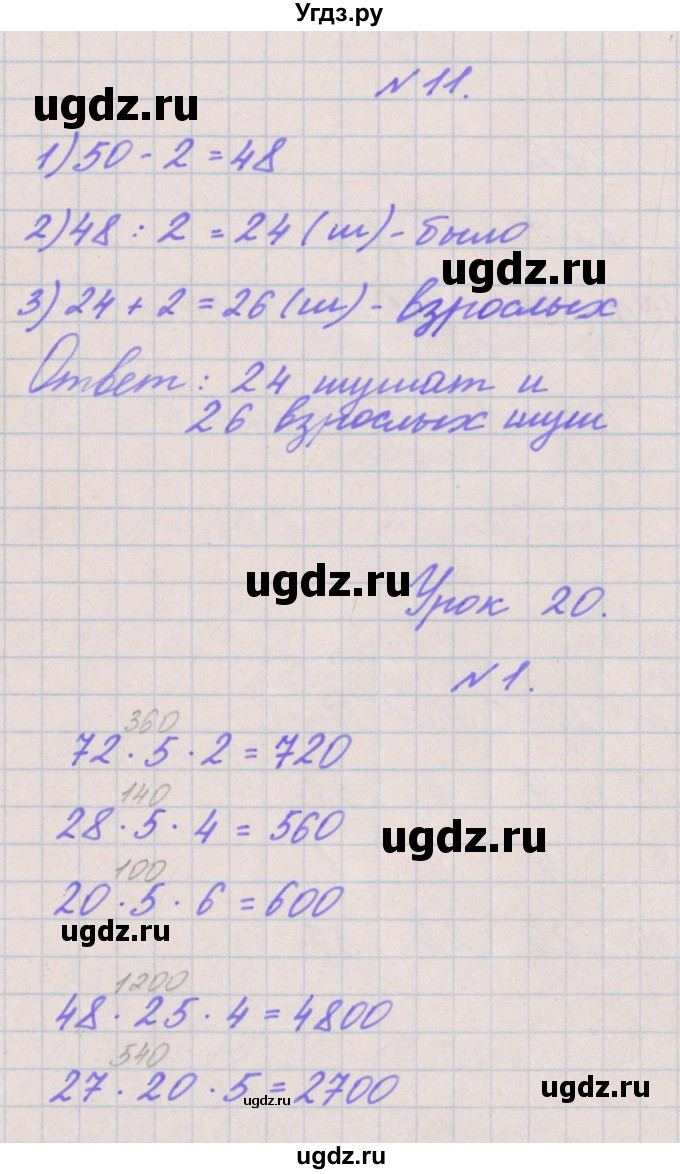 Угдз.ру
ugdz.ru
№11.
1) 50 - 2 = 48
2) 48 : 2 = 24 (ш) - было
ugdz.ru
3) 24 + 2 = 26 (ш) - взрослых
Ответ: 24 шушат и
26 взрослых шуш
ugdz.ru
Урок 20.
№1.
360
72 · 5 · 2 = 720
140
28 · 5 · 4 = 560
ugdz.ru
100
20 · 5 · 6 = 600
ugdz.ru
1200
48 · 25 · 4 = 4800
540
27 · 20 · 5 = 2700
ugdz.ru
ugdz.ru
ugdz.ru